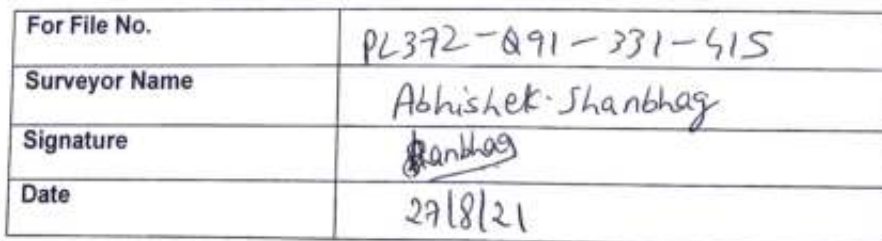 For File No. PL372-Q91-331-415
Surveyor Name Abhishek. Shanbhag
Signature Shanbhag
Date 27/8/21